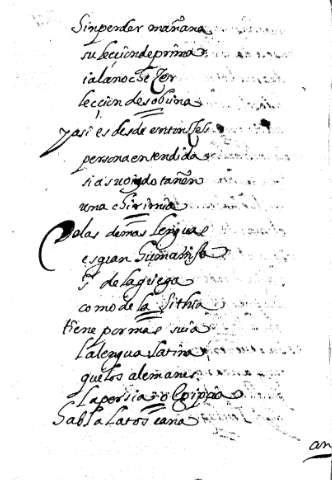 Sin perder mañana
su lección de prima
i a la noche
lección de sobina
y así es desde entonces
persona entendida
si a su oydo tañen
una chirimia
De las demas lenguas
es gran humanista
de la griega
como de la Sithia
tiene por mas suia
la lengua latina
que los alemanes
la persia o egippia
habla la toscana
an